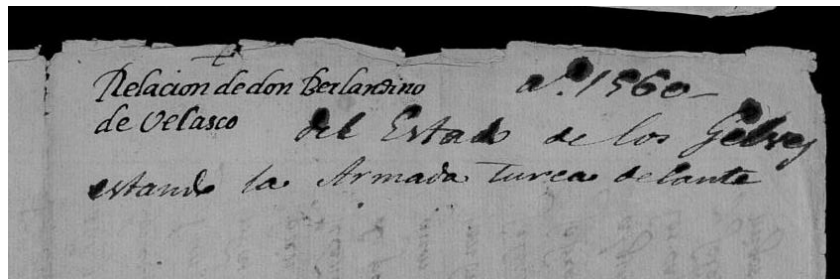 Relacion de don Berlandino aº. 1560-
de Velasco del Estado de los Gelves
estando la Armada Turca delante